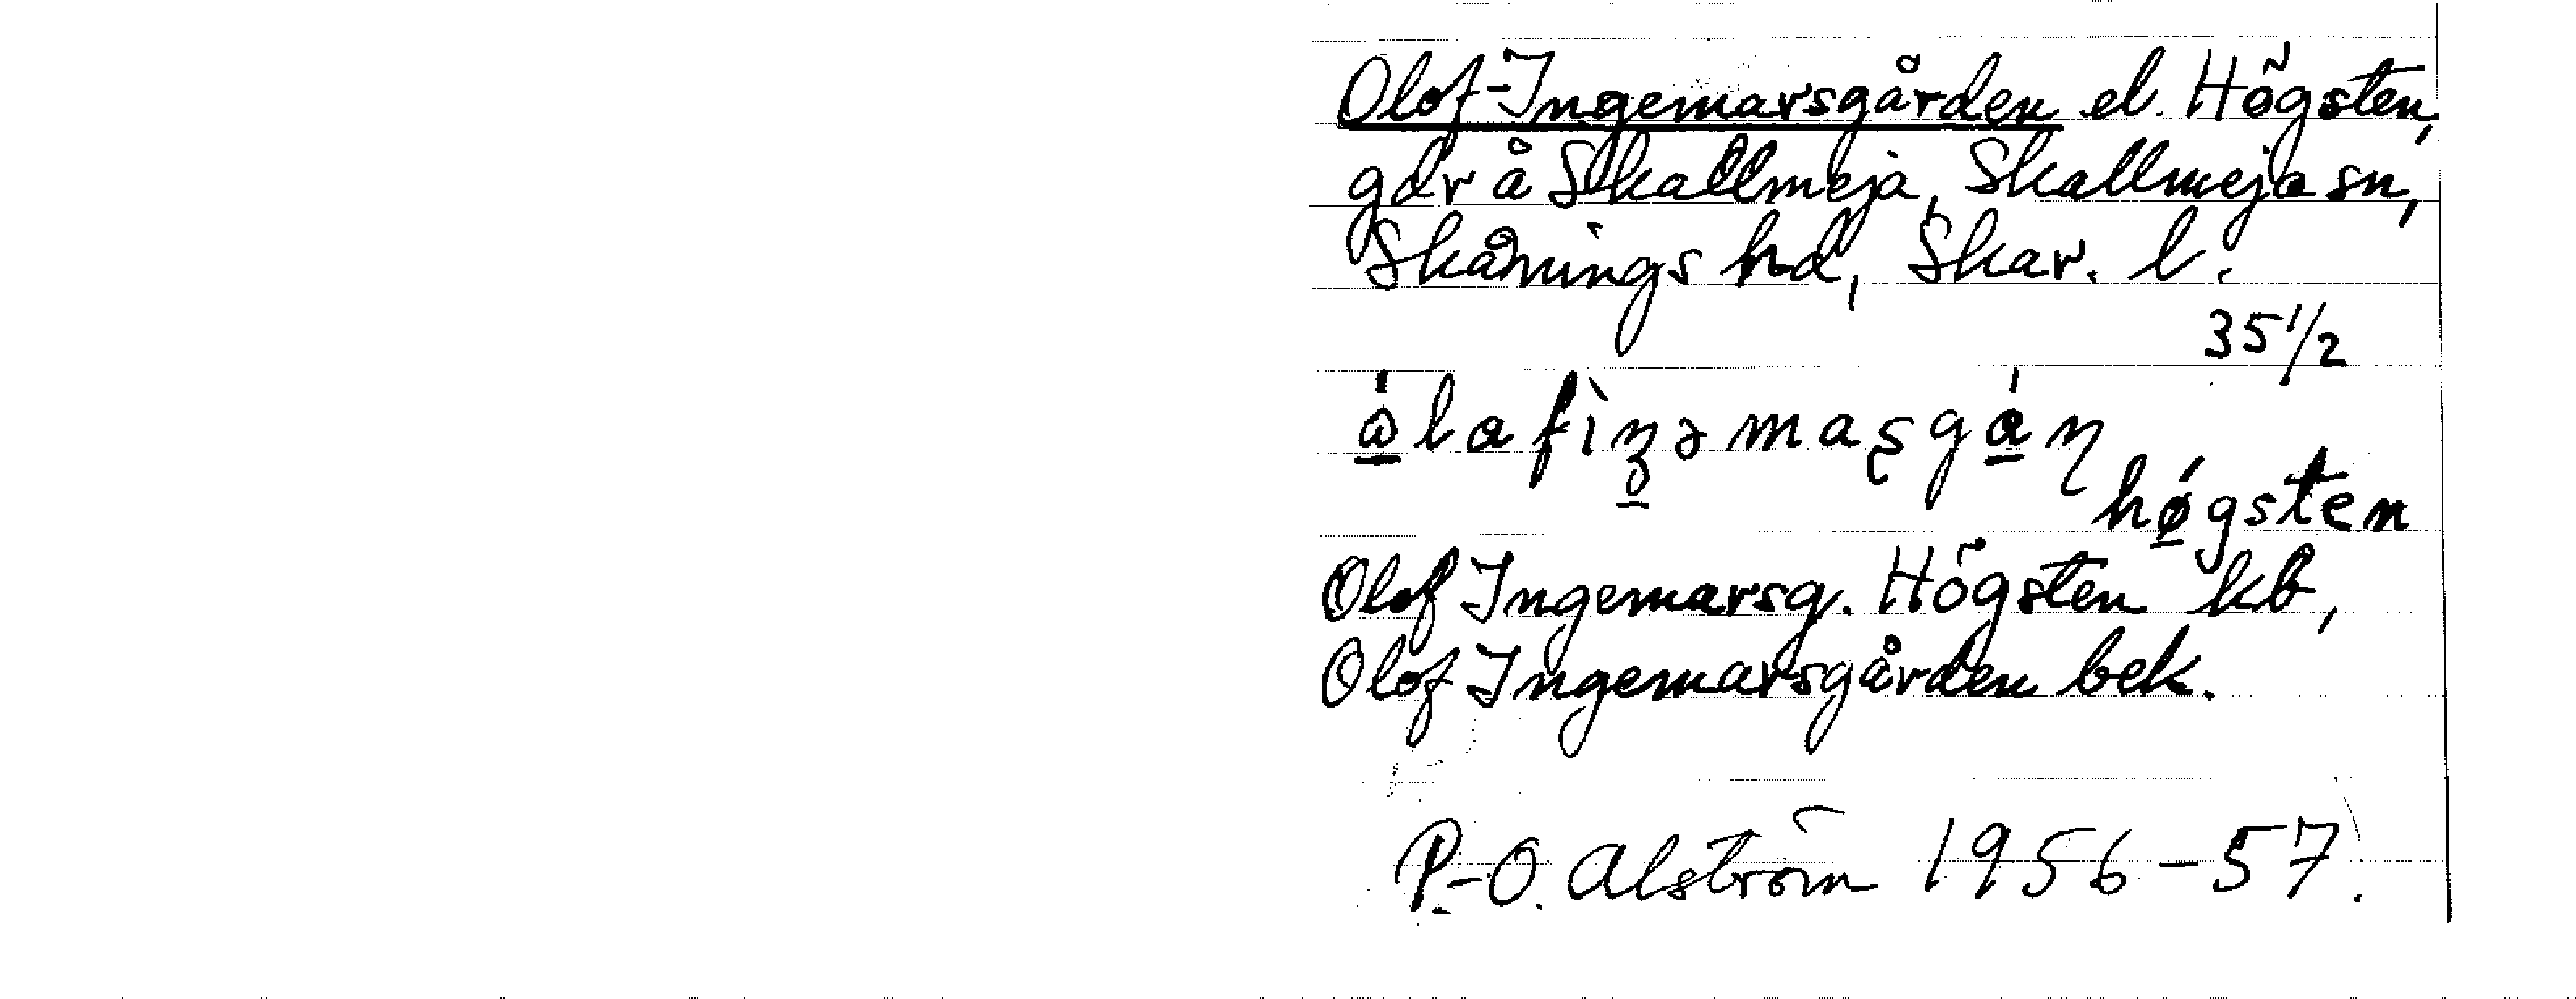 Olof-Ingemarsgården el. Högsten,
gdr å Skallmeja, Skallmeja sn,
Skånings hd, Skar. l.
35 1/2
högsten
Olof Ingemarsg. Högsten kb,
Olof Ingemarsgården bek.
P.-O. Alström 1956-57.